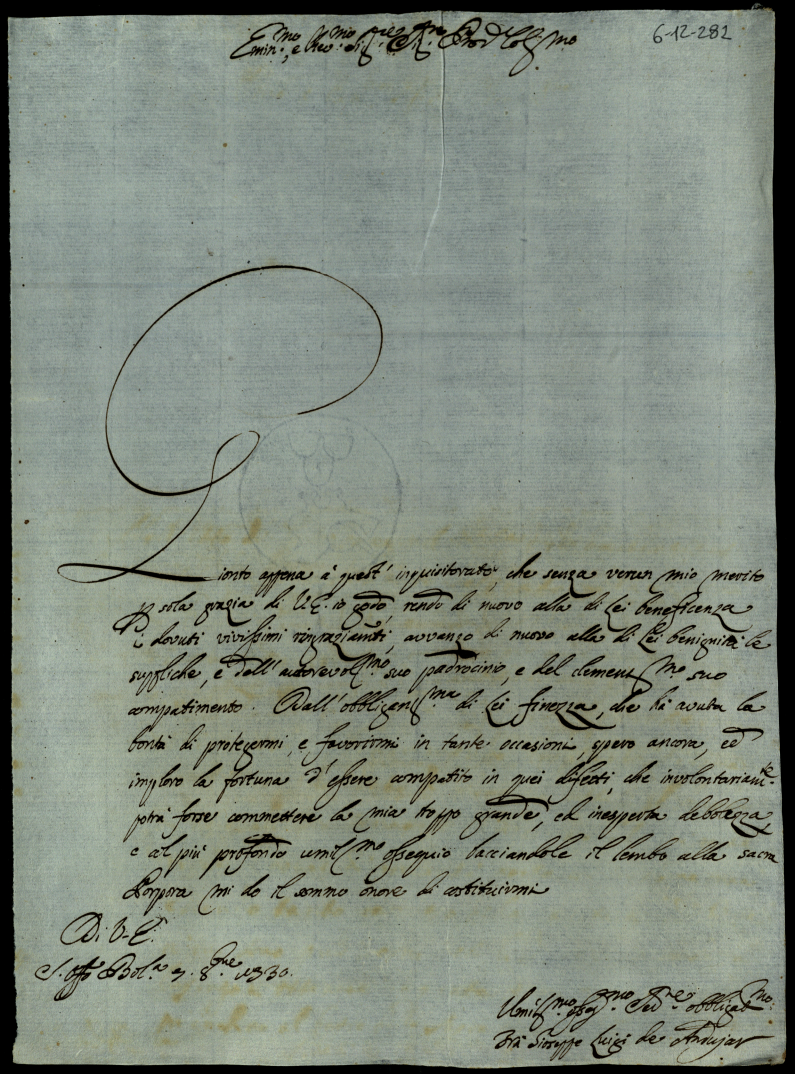 Emin.mo, e Rev.mo Sig.re Sig.re Pron. Col.mo
6-12-282
Gionto appena à quest' inquisitorato, che senza verun mio merito
p sola grazia di V.E. io godo, rendo di nuovo alla di Lei beneficenza
i dovuti vivissimi ringraziam.ti, avvanzo di nuovo alla di Lei benignità le
suppliche, e dell' autorevol.mo suo padrocinio, e del clementiss.mo suo
compatimento. Dall' obbligantiss.ma di Lei finezza, che hà avuta la
bontà di protegermi, e favorirmi in tante occasioni, spero ancora, ed
imploro la fortuna d' essere compatito in quei difetti, che involontariam.te
potrà forse commettere la mia troppo grande, ed inesperta debolezza
e col più profondo umiliss.mo ossequio bacciandole il lembo alla sacra
Porpora mi do il sommo onore di costituirmi
Di V.E.
S. Off.o Bol.a 7. 8bre 1730.
Umiliss.mo osseq.mo Ser.re obbligat.mo
Frà Gioseppe Luigi de Andujar